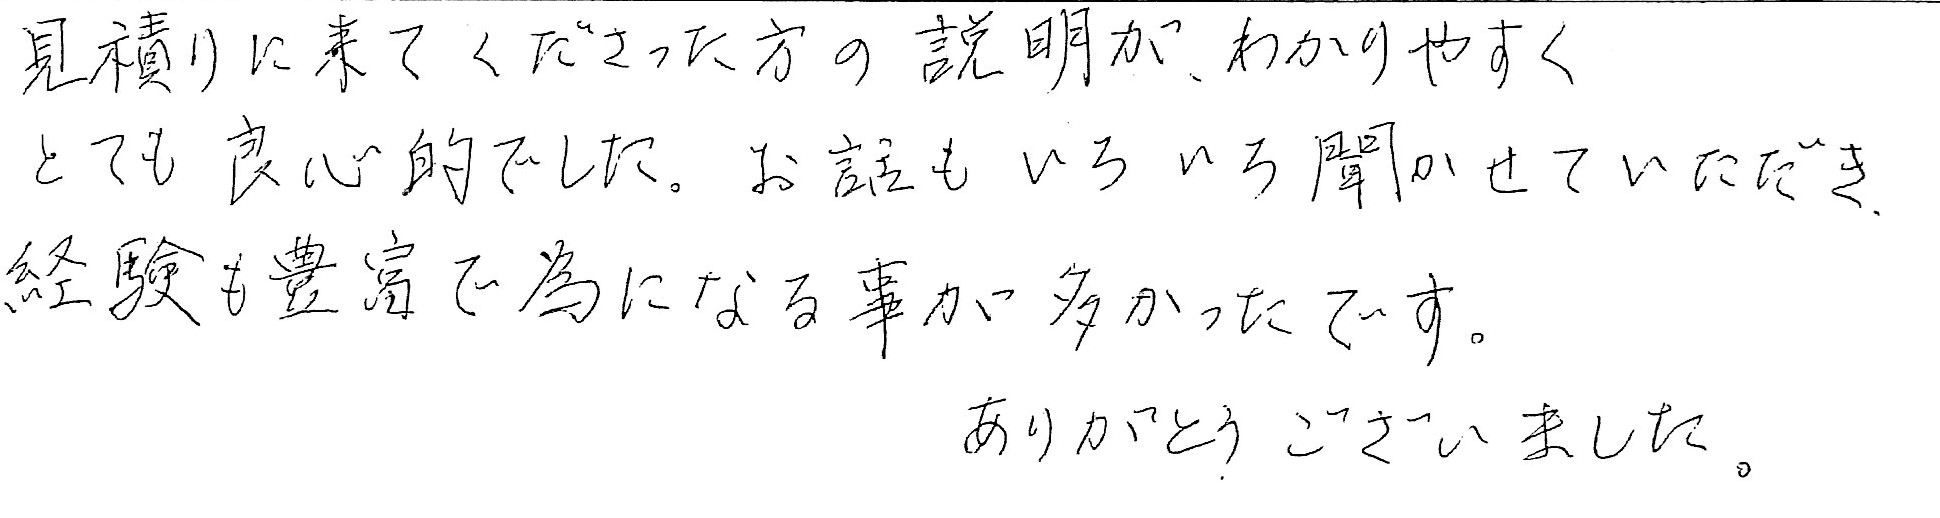 見積りに来てくださった方の説明が、わかりやすく
とても良心的でした。お話もいろいろ聞かせていただき、
経験も豊富で為になる事が多かったです。
ありがとうございました。